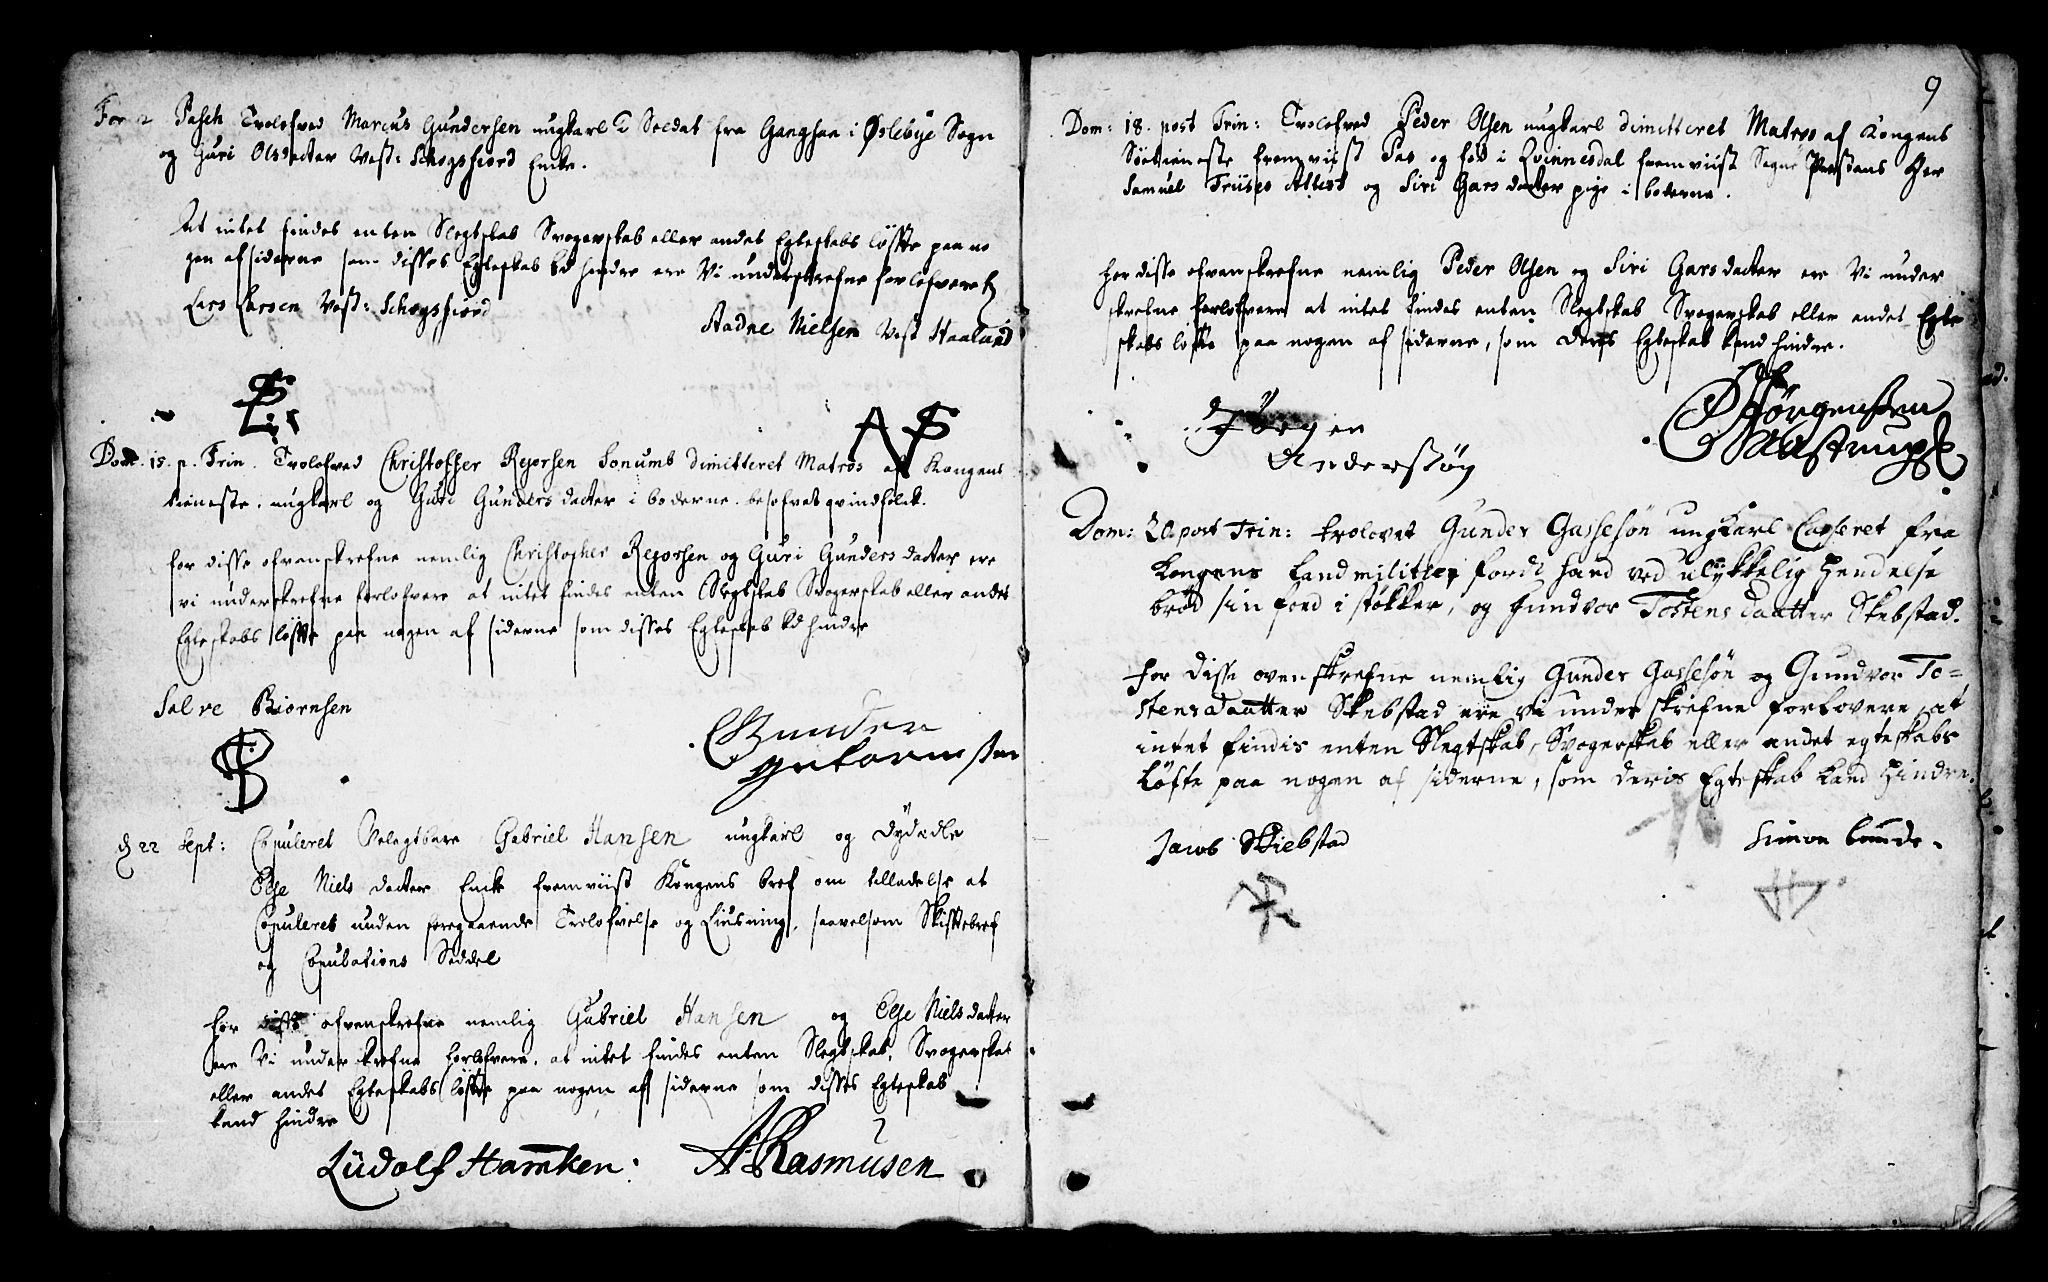 For 2 Pasch Trolofved Marcus Gundersen ungkarl Soldat fra Ganghaa i Øslebye Sogn
og Guri Olsdatter Vest: Schogsfiord Enke.
At intet findes enten Slegtskab Svogerskab eller andet Egteskabs løffte paa no
gen af siderne som disses Egteskab kd hindre ere Vi underskrefne forlofvere
Lars Larsen Vest: Schogsfiord
Aadne Nielsen Vest Haaland
LLS
ANS
Dom. 15. p. Trin. Trolofved Christoffer Rejorsen Sonumb dimitteret Matros af Kongens
tieneste. ungkarl og Guri Gunders datter i boderne. besofvet qvindfolck.
for disse ofvenskrefne nemlig Christopher Rejorsen og Guri Gunders datter ere
vi underskrefne forlofvere at intet findes enten Slegtskab Svogerskab eller andet
Egteskabs løffte paa nogen af siderne som disses Egteskab kd hindre
Salve Biørnsen
SBS
Gunder
Gutormsen
d 22 Sept: Copuleret Velagtbare Gabriel Hansen ungkarl og Dydædle
Else Niels datter Encke fremviist Kongens bref om tilladelse at
Copuleres uden foregaaende Trolofvelse og Liusning, saavelsom Skifftebref
og Copulations Seddel
for disse ofvenskrefne nemlig Gabriel Hansen og Else Niels datter
ere Vi underskrefne forlofvere. at intet findes enten Slegtskab, Svogerskab
eller andet Egteskabs løffte paa nogen af siderne som disses Egteskab
kand hindre
Lüdolf Hamken:
A Rasmusen
9
Dom: 18. post Trin: Trolofved Peder Olsen ungkarl dimitteret Matros af Kongens
Søetieneste fremviist Pas og fød i Qvinnesdal fremviist Sogne Præstens Her
Samuel Friises Attest og Siri Gars datter pige i boderne.
For disse ofvenskrefne nemlig Peder Olsen og Siri Gars datter ere Vi under
skrefne forlofvere at intet findes enten Slegtskab Svogerskab eller andet Egte
skabs løffte paa nogen af siderne, som deris Egteskab kand hindre.
Jørgen
Anderssøn
Jørgensen
Dom: 20 post Trin: trolovet Gunder Gassesøn ungkarl Casseret fra
Kongens Landmilitie, fordi hand ved ulykkelig Hendelse
brød sin foed i støkker, og Gundvor Tostens daatter Skebstad.
For disse ovenskrefne nemlig Gunder Gassesøn og Gundvor To=
stensdaatter Skebstad ere vi underskrefne forlovere, at
intet findis enten Slegtskab, Svogerskab eller andet egteskabs
Løfte paa nogen af siderne, som deris Egteskab kand hindre.
Jacob Skiebstad
Simon Lunde.